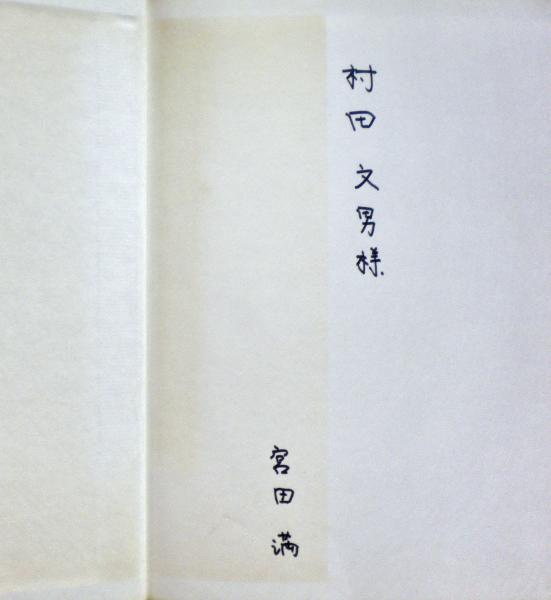 村田 文男様
宮田 満